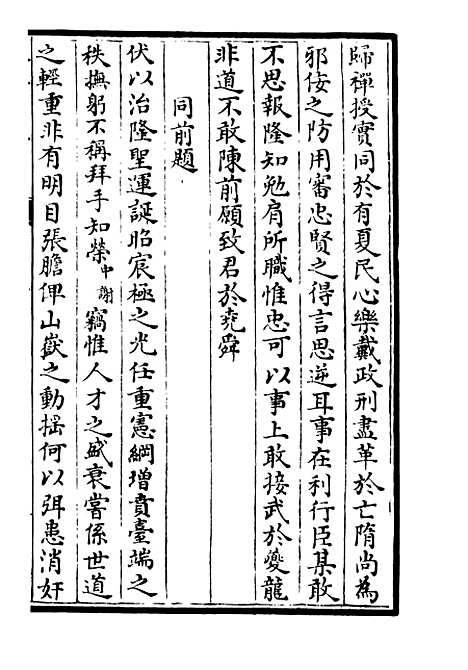 歸禪授實同於有夏民心樂戴政刑盡革於亡隋尚為
邪佞之防用審忠賢之得言思逆耳事在利行臣某敢
不思報隆知勉肩所職惟忠可以事上敢接武於夔龍
非道不敢陳前願致君於堯舜
同前題
伏以治隆聖運誕昭宸極之光任重憲綱增賁臺端之
秩撫躬不稱拜手知榮中謝竊惟人才之盛衰嘗係世道
之輕重非有明目張膽俾山嶽之動搖何以弭患消奸